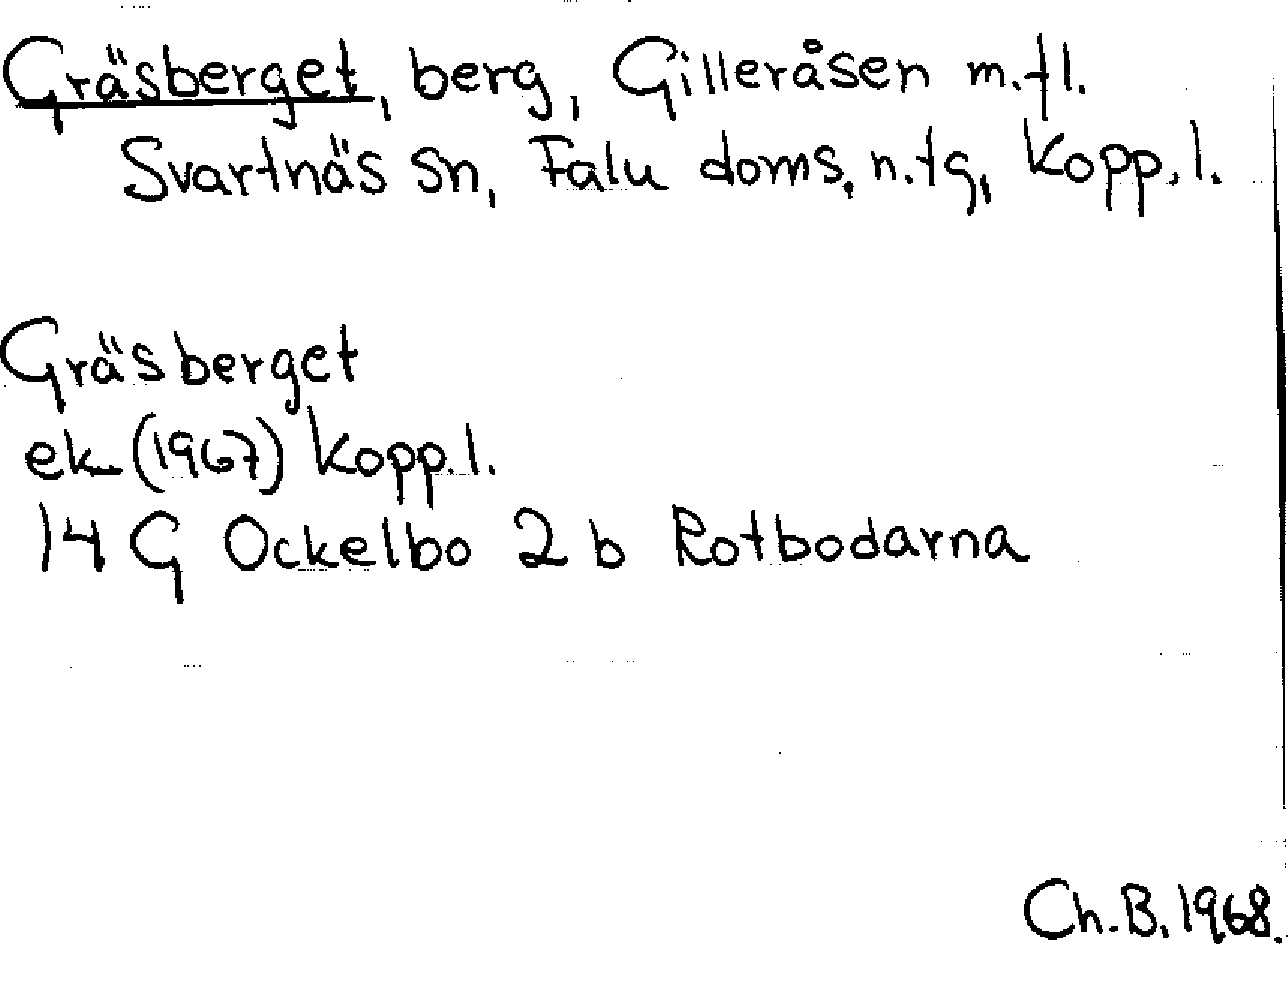 Gräsberget, berg, Gilleråsen m.fl.
Svartnäs sn, Falu doms. n.tg, Kopp.l.
Gräsberget
ek (1967) Kopp.l.
14 G Ockelbo 2 b Rotbodarna
Ch.B. 1968.